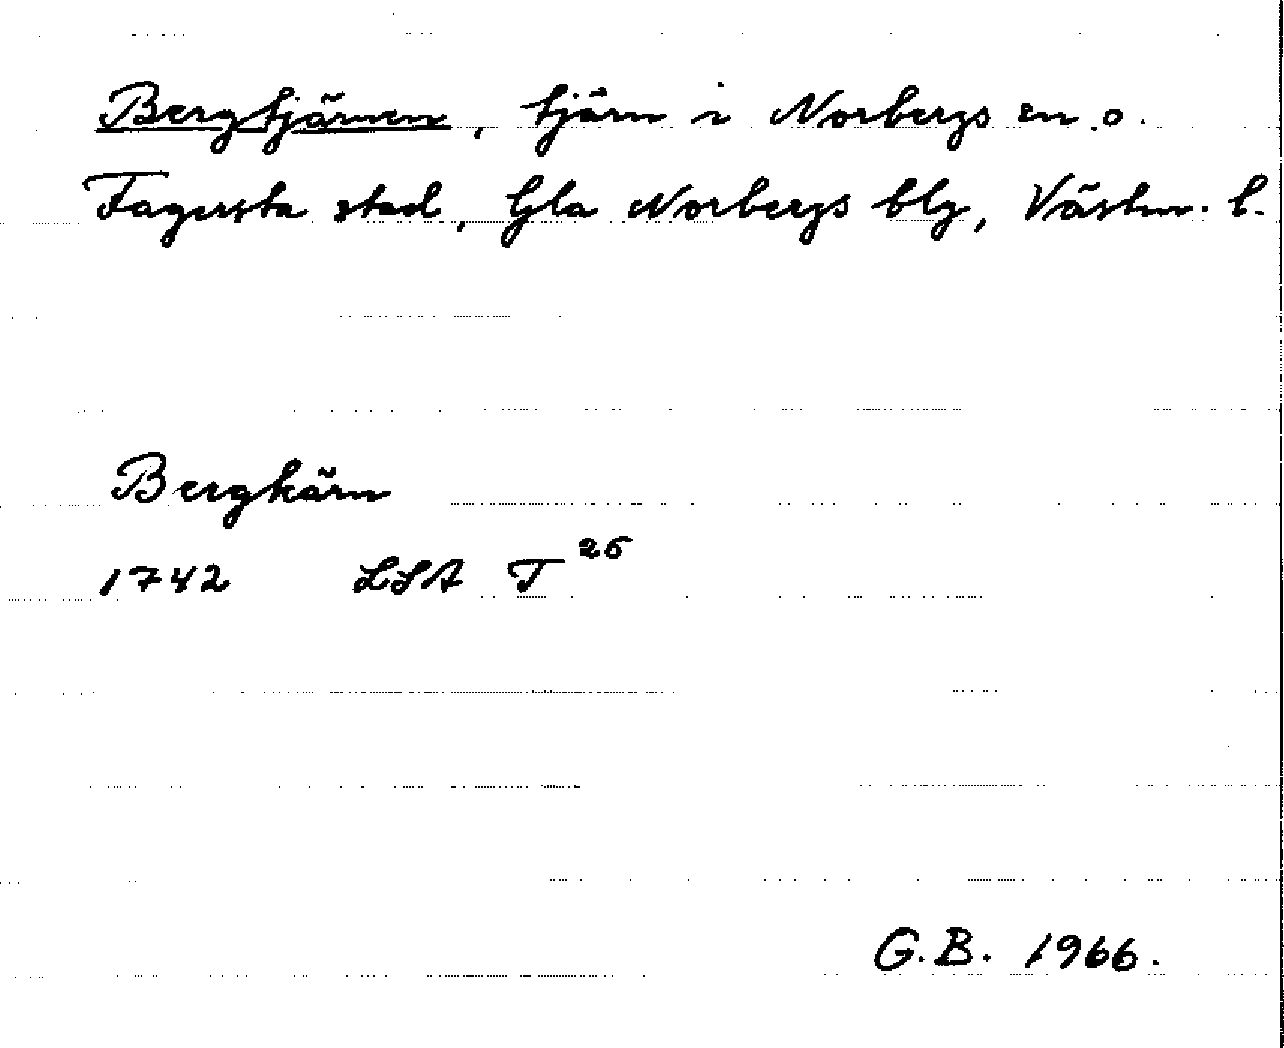 Bergtjärnen, tjärn i Norbergs sn. o.
Fagersta stad, Gla Norbergs blg, Västm. l.
Bergkärn
1742 LSA T 26
G.B. 1966.